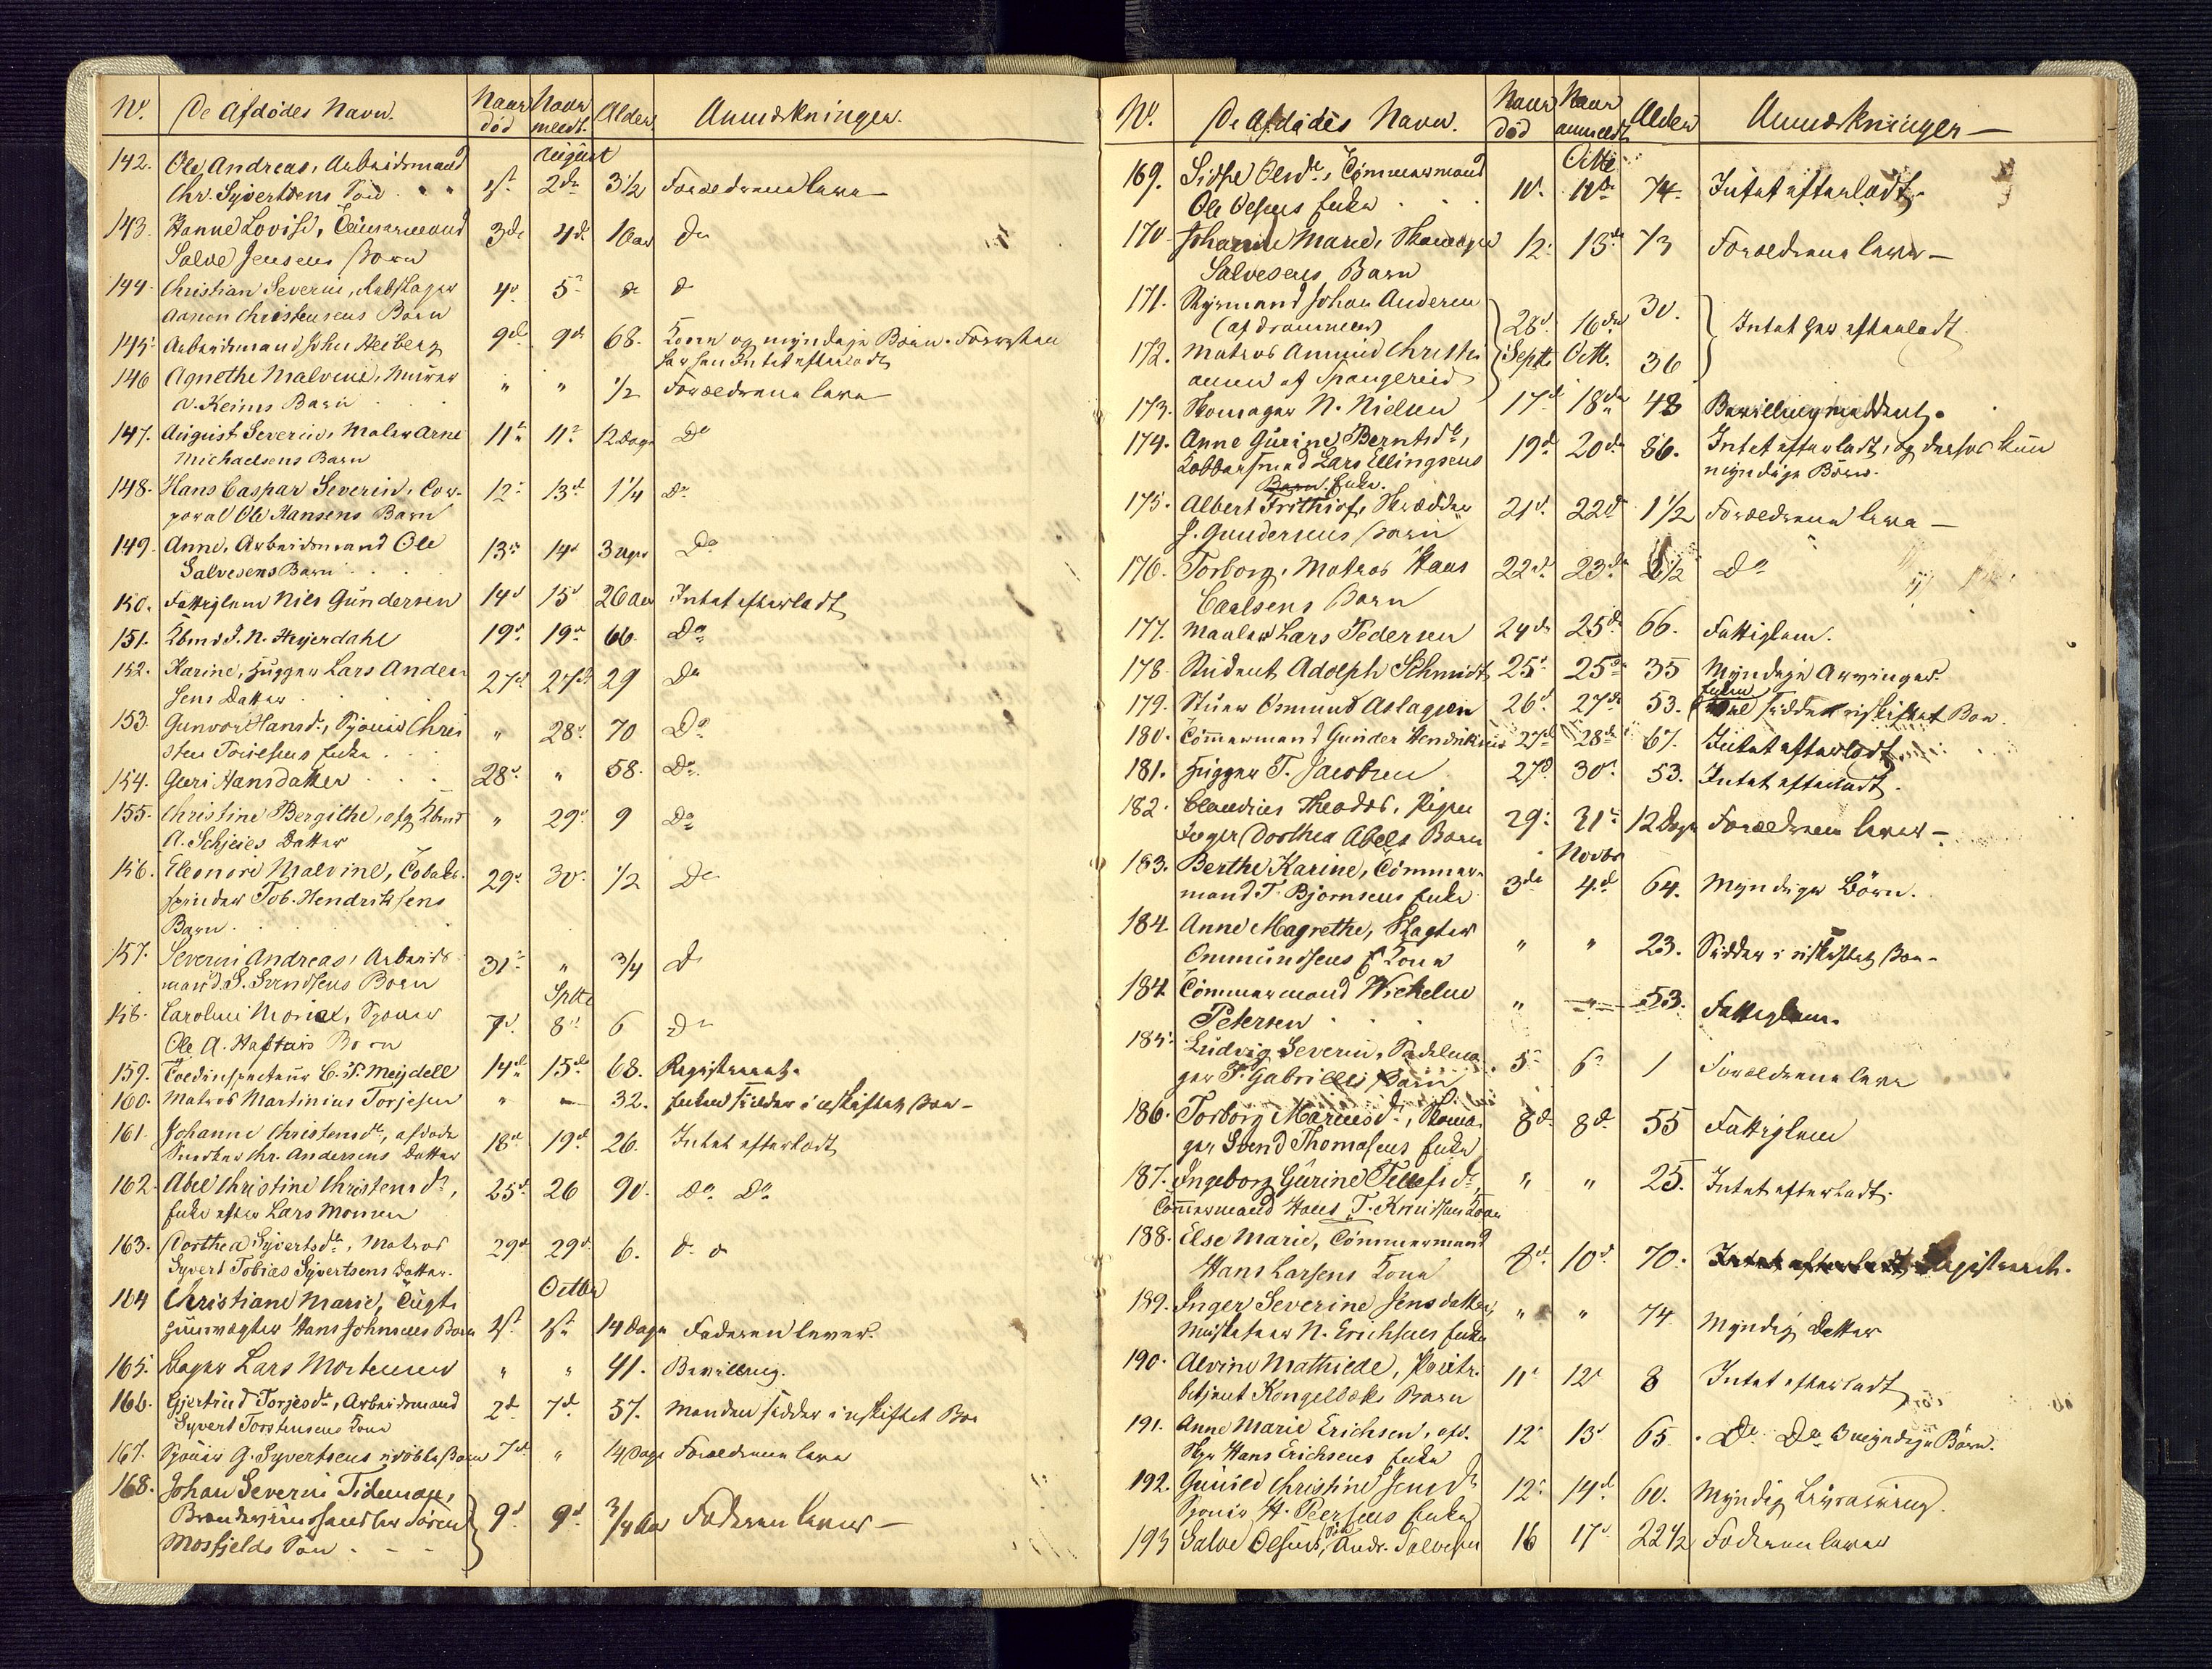 No. De Afdödes Navn. Naar död Naar meldt. Alder Anmærkninger.
August
142. Ole Andreas, Arbeidsmand
Chr. Syvertsens Sön 1st 2de 3½ Forældrene leve
143. Hanne Lovise, Tömmermand
Salve Jensens Barn 3de 4de 1 Aar Do
144. Christian Severin, Rebslager
Aanon Christensens Barn 4d 5 do d
145. Arbeidsmand John Heiberg 9de 9de 68. Kone og myndige Börn. Forresten
har han Intet efterladt
146 Agnethe Malvine, Murer
N. Keims Barn " " ½ Forældrene leve
147. August Severin, Maler Arne
Michaelsens Barn 11te 11te 12 Dage Do
148. Hans Caspar Severin, Cor-
poral Ole Hansens Barn 12 13d 1¼ Do
149. Anne, Arbeidsmand Ole
Salvesens Barn 13de 14d 3 Uger Do
150. Fattiglem Niels Gundersen 14d 15d 26 Aar Intet efterladt
151. Kbmd J. N. Heyerdahl 19d 19de 66 Do
152. Karine, Hugger Lars Ander
sens Datter 27d 27de 29 Do
153 Gunvor Hansd., Sjömand Chri
sten Enke " 28d 70 Do
154. Guri Hansdatter 28d " 58. Do
155. Christine Bergithe, afg. Kbmd
A. Schjeies Datter " 29d 9 Do
156. Eleonore Malvine, Tobaks-
spinder Tob. Hendriksens
Barn 29d 30d ½ Do
157. Severin Andreas, Arbeids-
mand S. Svendsens Barn 31te " ¾ Do
Septbr
158. Caroline Sjömand
Ole A. Barn 7d 8d 6 Do
159. Toldinspecteur C. F. Meydell 14de 15de 68. Registreret.
160. Matros Martinius Torjesen " — 32. Enken sidder i uskiftet Boe
161. Johanne Christensdt, afdöde
Snedker Chr. Andersens Datter 18de 19d 26. Intet efterladt
162. Abel Christine Christensdt,
Enke efter Lars Monsen 25d 26 90. Do Do
163. Dorthea Syvertsdt, Matros
Syvert Tobias Syvertsens Datter. 29d 29d 6. do do
Octbr
164 Christiane Marie, Tugt-
huusvægter Hans Johnsens Barn 1st 1st 14 Dage Faderen lever.
165. Bager Lars Mortensen " " 41. Bevilling.
166. Gjertrud Torjesdt, Arbeidsmand
Syvert Torstensens Kone 2d 7d 57. Manden sidder i uskiftet Boe
167. Sjömand G. Syvertsens udöbte Barn 7de " 14 Dage Forældrene leve
168. Johan Severin Tideman,
Brændeviinshandler Sören
Mosfjelds Sön 9d 9d ¾ Aar Faderen lever
No. De Afdödes Navn. Naar död Naar anmeldt Alder Anmærkninger
Octbr
169. Olsdt, Tömmermand
Ole Olsens Enke 10d 11te 74. Intet efterladt
170 Johanne Marie, Skomager
Salvesens Barn 12. 13de 73 Forældrene lever
171. Styrmand Johan Andersen
(af Drammen) 28d 16de 30.
172. Matros Anund Christi
ansen af Spangereid Septbr Octb. 36 Intet har efterladt
173. Skomager N. Nielsen 17d 18de 48 Bevilling meddeelt.
174. Anne Gurine Berntsdt,
Kobbersmed Lars Ellingsens
Barn. Enke. 19d 20de 36. Intet efterladt, og desfor kun
myndige Börn.
175. Albert Frithiof, Skrædder
J. Gundersens Barn 21d 22d 1½ Forældrene leve
176. Torborg, Matros Hans
Carlsens Barn 22d 23de 6½ Do
177. Maaler Lars Pedersen 24de 25de 66. Fattiglem.
178. Student Adolph Schmidt 25d 25de 35 Myndige Arvinger.
179. Stuer Osmund Aslagsen 26d 27de 53. Enken sidder i uskiftet Boe.
180. Tömmermand Gunder Hendriksen 27d 28de 67. Intet efterladt.
181. Hugger T. Jacobsen 27d 30d 53. Intet efterladt.
182. Claudius Theodor, Pigen
Inger Dorthea Abels Barn 29d 31te 12 Dage Forældrene lever
Novbr
183. Berthe Karine, Tömmer-
mand T. Bjornsens Enke 3de 4d 64. Myndige Börn.
184 Anne Magrethe, Slagter
Ommundsens Kone " " 23. Sidder i uskiftet Boe
184 Tömmermand Wichelm
Petersen " " 53. Fattiglem.
185. Ludvig Severin, Sadelma-
ger T. Gabrielsens Barn 5 6 1 Forældrene leve
186. Torborg Mariusdt, Skoma-
ger Svend Thomasens Enke 8d 8d 55 Fattiglem
187. Ingeborg Gurine Tellefsdt,
Tömmermand Hans T. Knudsens Kone " " 25. Intet efterladt.
188. Else Marie, Tömmermand
Hans Larsens Kone 8d 10d 70. Intet efterladt Registreret.
189. Inger Severine Jensdatter,
N. Erichsens Enke " " 74 Myndig Datter
190. Alvine Mathilde, Politi-
betjent Kongelbeks Barn 11 12 8 Intet efterladt
191. Anne Marie Erichsen, afd.
Skpr Hans Erichsens Enke 12 13 65 Do Do 3 myndige Börn.
192. Gunild Christine Jensdt
Sjömand H. Peersens Enke 12 14d 60. Myndig Livsarving.
193 Salve Olsens Sön Andr. Salvesen 16 17d 22½ Faderen lever